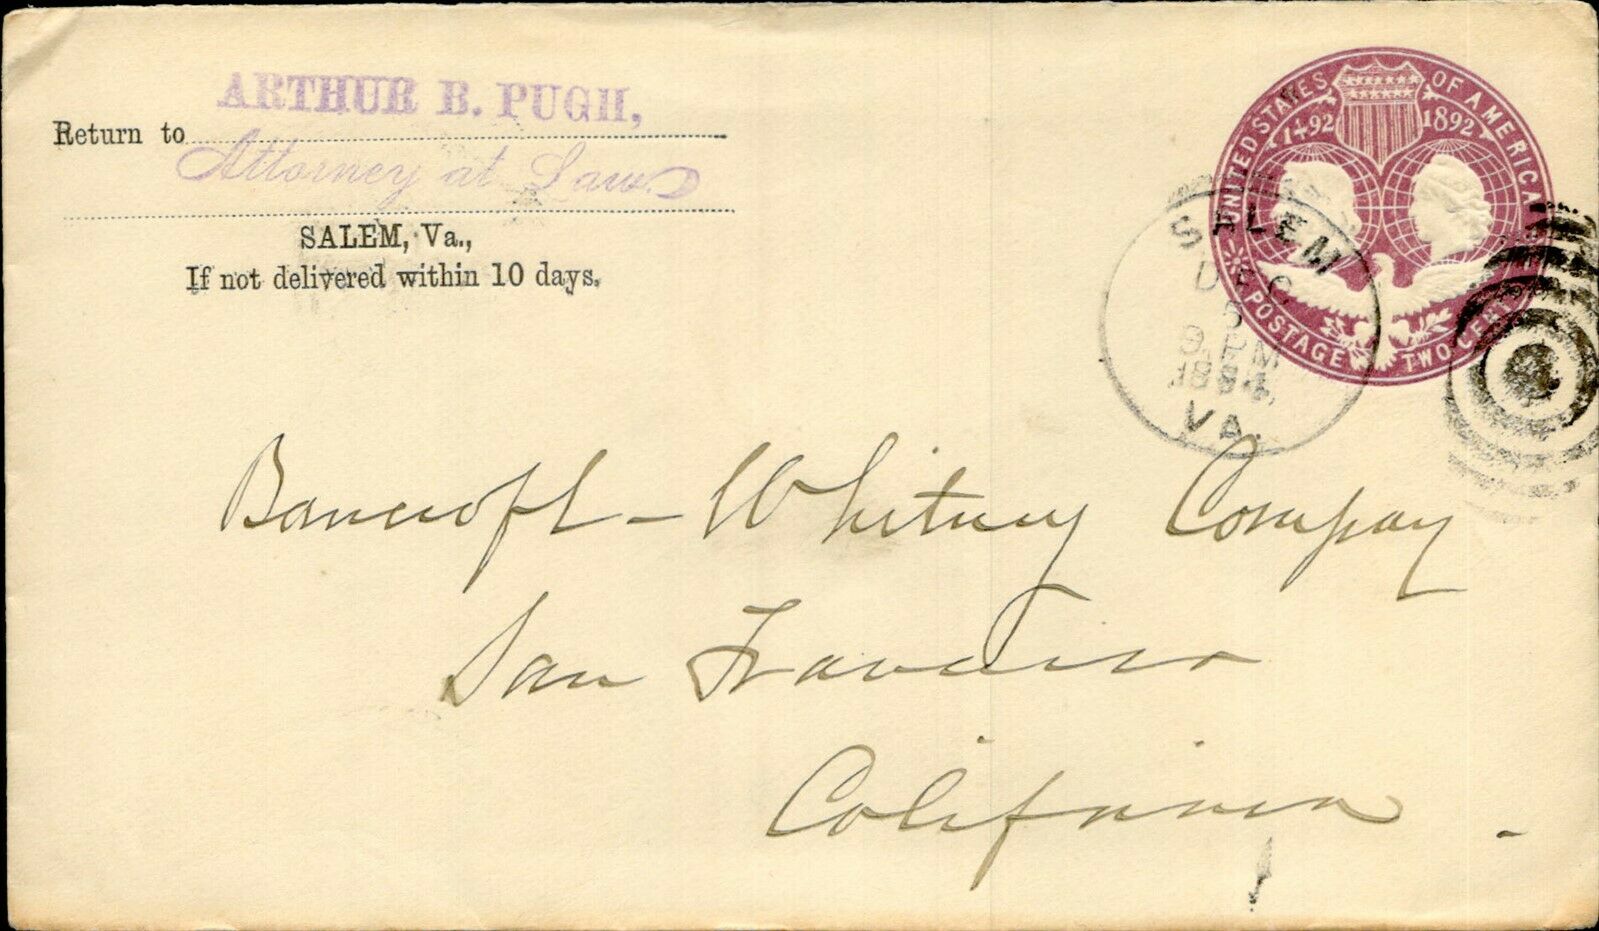 ARTHUR B. PUGH,
Return to
Attorney at Law.
SALEM, Va.,
If not delivered within 10 days.
UNITED STATES OF AMERICA
1492 1892
POSTAGE TWO CENTS
SALEM
DEC
5
PM
1894
VA.
Bancroft-Whitney Company
San Francisco
California.